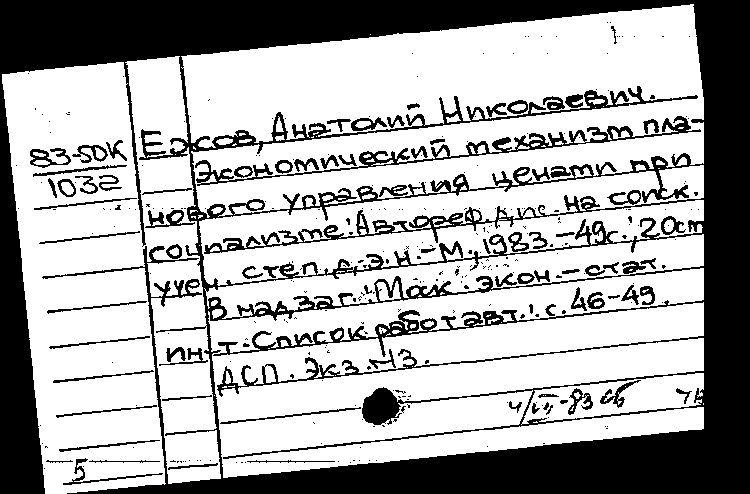 83-5DK
1032
Ежов, Анатолий Николаевич.
Экономический механизм пла-
нового управления ценами при
социализме: Автореф. дис. на соиск.
учен. степ. д. э. н. - М., 1983. - 49с.; 20см
В надзаг.: Моск. экон. - стат.
ин-т. Список работ авт.: с. 46-49.
ДСП. Экз. №3.
4/III-83
5